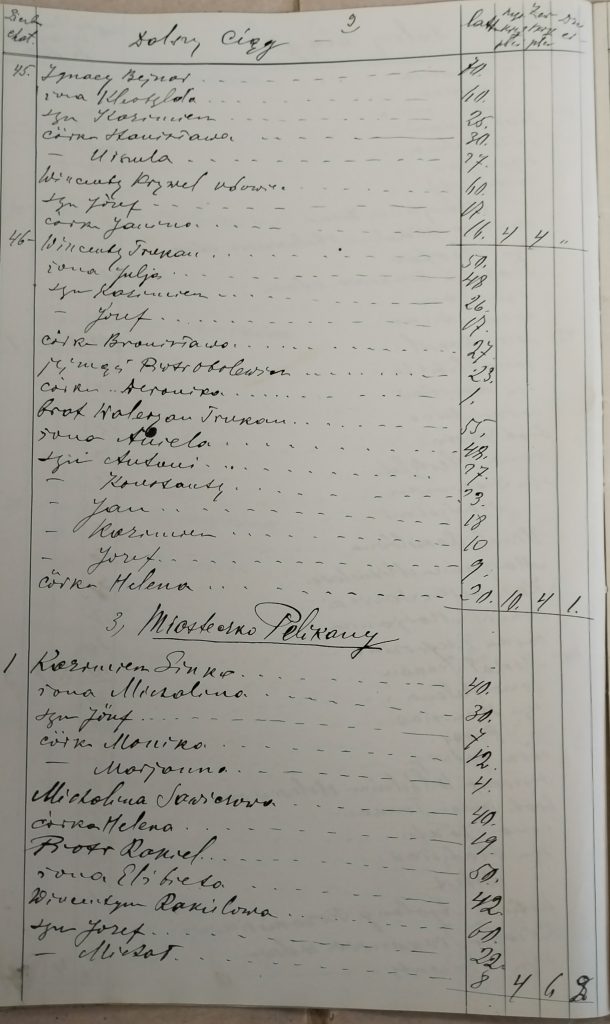 Dalszy Ciąg - 9
lat
45. Ignacy Bejnar 70.
żona Kleotylda 60.
syn Kazimierz 25.
córka Stanisława 30.
— Urszula 27.
Wincenty 60.
syn Józef 17.
córka Janina 16. 4 4 "
46- Wincenty Trukan 50.
żona Julja 48
syn Kazimierz 26.
— Józef 17.
córka Bronisława 27
jej mąż Piotr 23.
córka Weronika 1.
brat Waleryan Trukan 55.
żona Aniela 48.
syn Antoni 27.
— Konstanty 23.
— Jan 18
— Kazimierz 10
— Józef 9.
córka Helena 20. 10. 4 1.
3, Miasteczko Pelikany
1 Kazimierz Sinka 40.
żona Michalina 30.
syn Józef 7
córka Monika 12.
— Marjanna 4.
Michalina 40.
córka Helena 19
Piotr Rakiel 60.
żona Elżbieta 42.
Rakielowa 60.
syn Józef 22.
— Michał 8 4 6 2